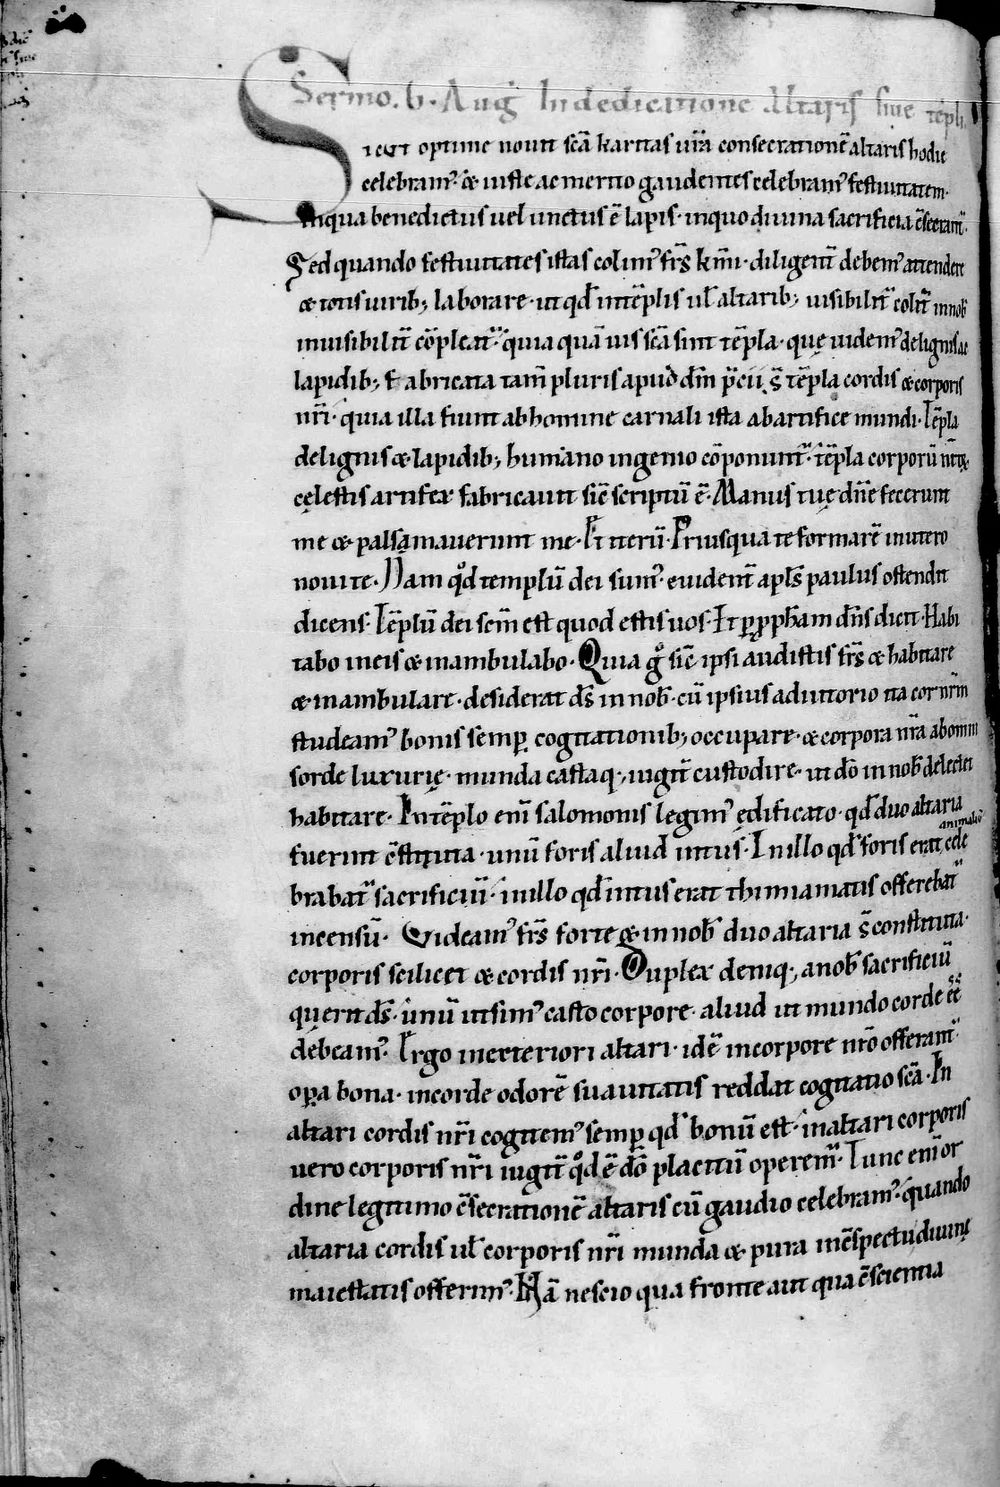 Sermo. b. Aug̅ In dedicatione Altaris siue te̅pli
Sicut optime nouit sc̅a karitas ur̅a consecratione̅ altaris hodie
celebram᾿. & iuste ac merito gaudentes celebram᾿ festiuitatem.
inqua benedictus uel unctus e̅ lapis. inquo diuina sacrificia c̅secrant᾿.
Sed quando festiuitates istas colim᾿ fr̅s kmi̅. diligent̅ debem᾿ attendere
& totis uirib; laborare. ut qd̅ inte̅plis ul̅ altarib; uisibilit̅ colit᾿ innob̅
inuisibilit̅ co̅pleat᾿. quia qua̅uis sc̅a sint te̅pla. quę uidem᾿ delignis ac
lapidib; fabricata tam̅ pluris apud dm̅ p̅cii s̅ te̅pla cordis & corporis
nr̅i. quia illa fiunt abhomine carnali ista abartifice mundi. Te̅pla
delignis & lapidib; humano ingenio co̅ponunt᾿. te̅pla corporu̅ nr̅oꝝ
cęlestis artifex fabricauit sic̅ scriptu̅ e̅. Manus tuę dn̅e fecerunt
me & palsamauerunt me. Et iteru̅. Priusqua te formare̅ inutero
noui te. Nam qd̅ templu̅ dei sum᾿. euident̅ apl̅s paulus ostendit
dicens. Te̅plu̅ dei scm̅ est quod estis uos. It ꝑ ꝓph̅am dn̅s dicit. Habi
tabo ineis & inambulabo. Quia g̊ sic̅ ipsi audistis fr̅s & habitare
& inambulare. desiderat ds̅ innob̅. cu̅ ipsius adiutorio ita cor nr̅m
studeam᾿ bonis semꝑ cogitationib; occupare. & corpora nr̅a abomni
sorde luxurię. munda castaq; iugit̅ custodire. ut do̅ innob̅ delectet
habitare. Inte̅plo eni̅ salomonis legim᾿ ędificato. qd̅ duo altaria
fuerunt c̅stituta. unu̅ foris aliud intus. Inillo qd̅ foris erat animaliu̅ cele
brabat᾿ sacrificiu̅. inillo qd̅ intus erat thimiamatis offerebat᾿
incensu̅. Videam᾿ fr̅s forte & innob̅ duo altaria s̅ constituta.
corporis scilicet & cordis nr̅i. Duplex deniq; anob̅ sacrificiu̅
querit ds̅. unu̅ ut sim᾿ casto corpore. aliud ut mundo corde e̅e̅
debeam᾿. Ergo inexteriori altari. ide̅ incorpore nr̅o offerant᾿
oꝑa bona. incorde odore̅ suauitatis reddat cogitatio sc̅a. In
altari cordis nr̅i cogitem᾿ semꝑ qd̅ bonu̅ est. inaltari corporis
uero corporis nr̅i iugit̅ qd̅ e̅ do̅ placitu̅ operem᾿. Tunc eni̅ or
dine legitimo c̅secratione̅ altaris cu̅ gaudio celebram᾿. quando
altaria cordis ul̅ corporis nr̅i munda & pura inc̅spectu diuinę
maiestatis offerim᾿. Na̅ nescio qua fronte aut qua c̅scientia